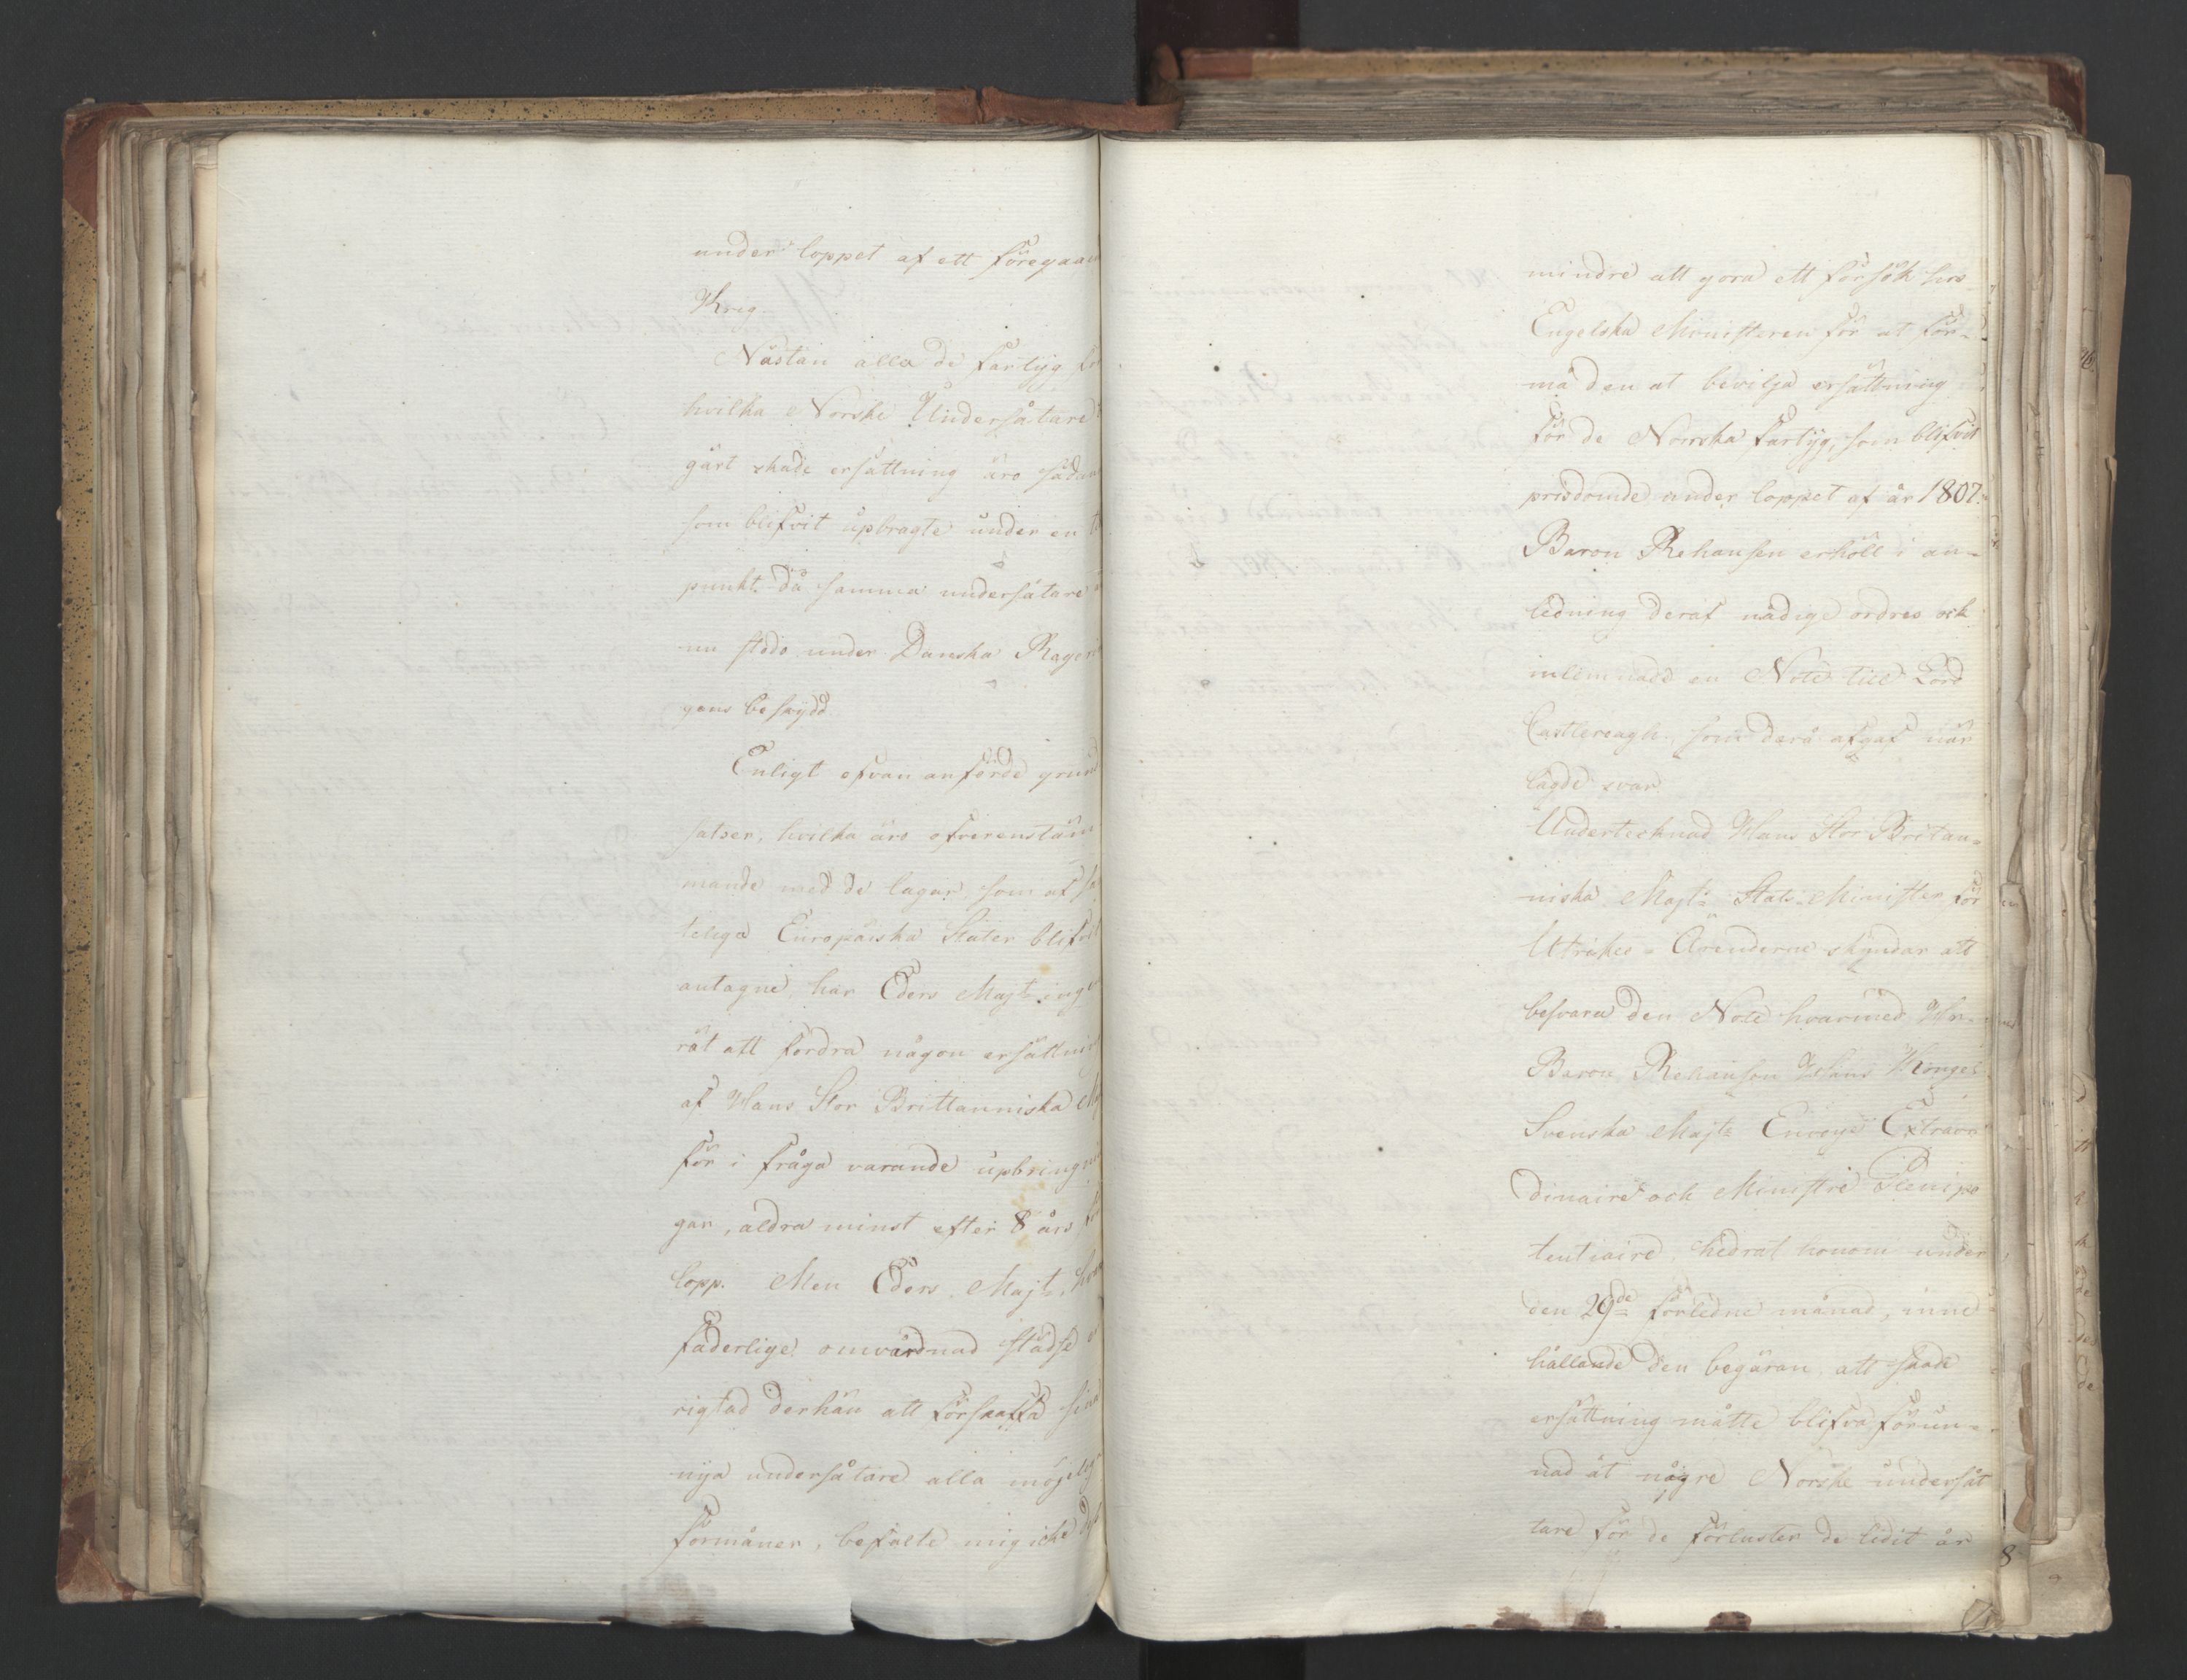 under loppet af ett föregaa
Krig.
Nästan alla de fartÿg
hvilka Norske Undersåtare
gärt skade ersättning äro sådan
som blifvit upbragte under en
punkt. då samma undersåtare
nu stodo under Danska Rege
gens beskÿdd
Enligt ofvan anförde grund
satser, hvilka äro öfverenstäm
mande med de lagar, som af
telige Europäiska Stater blifvit
antagne, har Eders Majt: ing
rät att fordra någon ersättni
af Hans Stor Brittanniska
för i fråga varande upbringni
gar, aldra minst efter 8 års
lopp. Men Eders Majt:
faderlige omvårdnad städse
rigtad derhän att förskaffa sina
nÿa undersåtare alla möjelig
förmåner, befalte mig icke
mindre att göra ett försök hos
Engelska Ministeren för at för-
må den at bevilja ersättning
för de Norrska fartÿg, som blifvit
prisdömde under loppet af år 1807.
Baron Rehausen erhöll i an-
ledning deraf nådige ordres och
inlemnade en Note till Lord
Castlereagh, som derå afgaf när
lagde svar.
Undertecknad Hans Stor Britan-
niska Majt: Stats-Minister för
Utrikes-Ärenderne skÿndar att
besvara den Note hvarmed Hr.
Baron Rehausen Hans Konges
Svenska Majt: Envoyé Extraor
dinaire och Ministre Plenipo
tentiaire, hedrat honom under
den 29de förledne månad, inne
hållande den begäran, att skade
ersättning måtte blifva förun-
nad åt någre Norske undersåt
tare för de förluster de lidit år
8